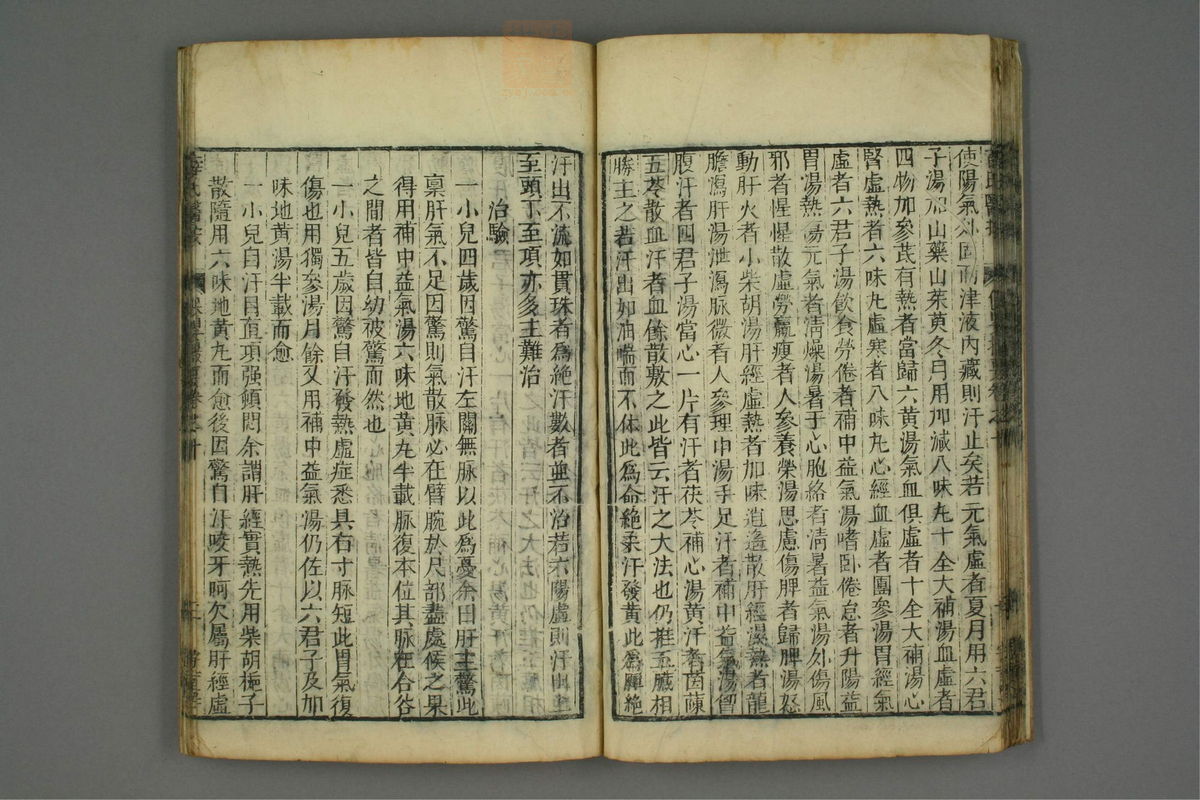 使陽氣外固而津液內藏則汗止矣若元氣虛者夏月用六君
子湯加山藥山茱萸冬月用加減八味丸十全大補湯血虛者
四物加參芪有熱者當歸六黃湯氣血俱虛者十全大補湯心
腎虛熱者六味丸虛寒者八味丸心經血虛者團參湯胃經氣
虛者六君子湯飲食勞倦者補中益氣湯嗜卧倦怠者升陽益
胃湯熱傷元氣者清燥湯暑于心胞絡者清暑益氣湯外傷風
邪者惺惺散虛勞羸瘦者人參養榮湯思慮傷脾者歸脾湯怒
動肝火者小柴胡湯肝經虛熱者加味逍遙散肝經濕熱者龍
膽瀉肝湯泄瀉脉微者人參理中湯手足汗者補中益氣湯
腹汗者四君子湯當心一片有汗者茯苓補心湯黃汗者茵蔯
五苓散血汗者血餘散敷之此皆云汗之大法也仍推五臟相
勝主之若汗出如油喘而不休此爲命絕柔汗發黃此爲脾絕
汗出不流如貫珠者爲絕汗數者並不治若六陽虛則汗出上
至頭下至項亦多主難治
治驗
一小兒四歲因驚自汗左關無脉以此爲憂余曰肝主驚此
稟肝氣不足因驚則氣散脉必在臂腕於尺部盡處候之果
得用補中益氣湯六味地黃丸半載脉復本位其脉在合谷
之間者皆自幼被驚而然也
一小兒五歲因驚自汗發熱虛症悉具右寸脉短此胃氣復
傷也用獨參湯月餘又用補中益氣湯仍佐以六君子及加
味地黃湯半載而愈
一小兒自汗目直項强頓悶余謂肝經實熱先用柴胡梔子
散隨用六味地黃丸而愈後因驚自汗咬牙呵欠屬肝經虛
薛氏醫按